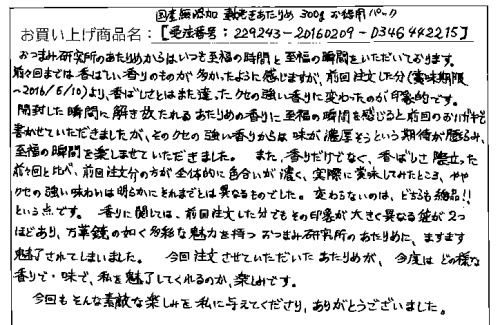 国産無添加 動老きあたりめ 300g お得用パック
お買い上げ商品名：【受注番号：229243-20160209-0346442215】
おつまみ研究所のあたりめからはいつも至福の時間と至福の瞬間をいただいております。
前々回までは香ばしい香りのものが多かったように感じますが、前回注文した分（賞味期限
～2016/6/10）より、香ばしさとはまた違ったクセの強い香りに変わったのが印象的です。
開封した瞬間に解き放たれるあたりめの香りに至福の瞬間を感じると前回のおハガキでも
書かせていただきましたが、そのクセの強い香りからは味が濃厚そうという期待が膨らみ、
至福の瞬間を楽しませていただきました。 また、香りだけでなく、香ばしさ際立った
前々回と比べ、前回注文分の方が全体的に色合いが濃く、実際に賞味してみたところ、やや
クセの強い味わいは明らかにそれまでとは異なるものでした。変わらないのは、どちらも絶品!!
という点です。 香りに関しては、前回注文した分でもその印象が大きく異なる袋が2つ
ほどあり、万華鏡の如く多彩な魅力を持つおつまみ研究所のあたりめに、ますます
魅了されてしまいました。 今回注文させていただいたあたりめが、今度はどの様な
香りで・味で、私を魅了してくれるのか、楽しみです。
今回もそんな素敵な楽しみを私に与えてくださり、ありがとうございました。